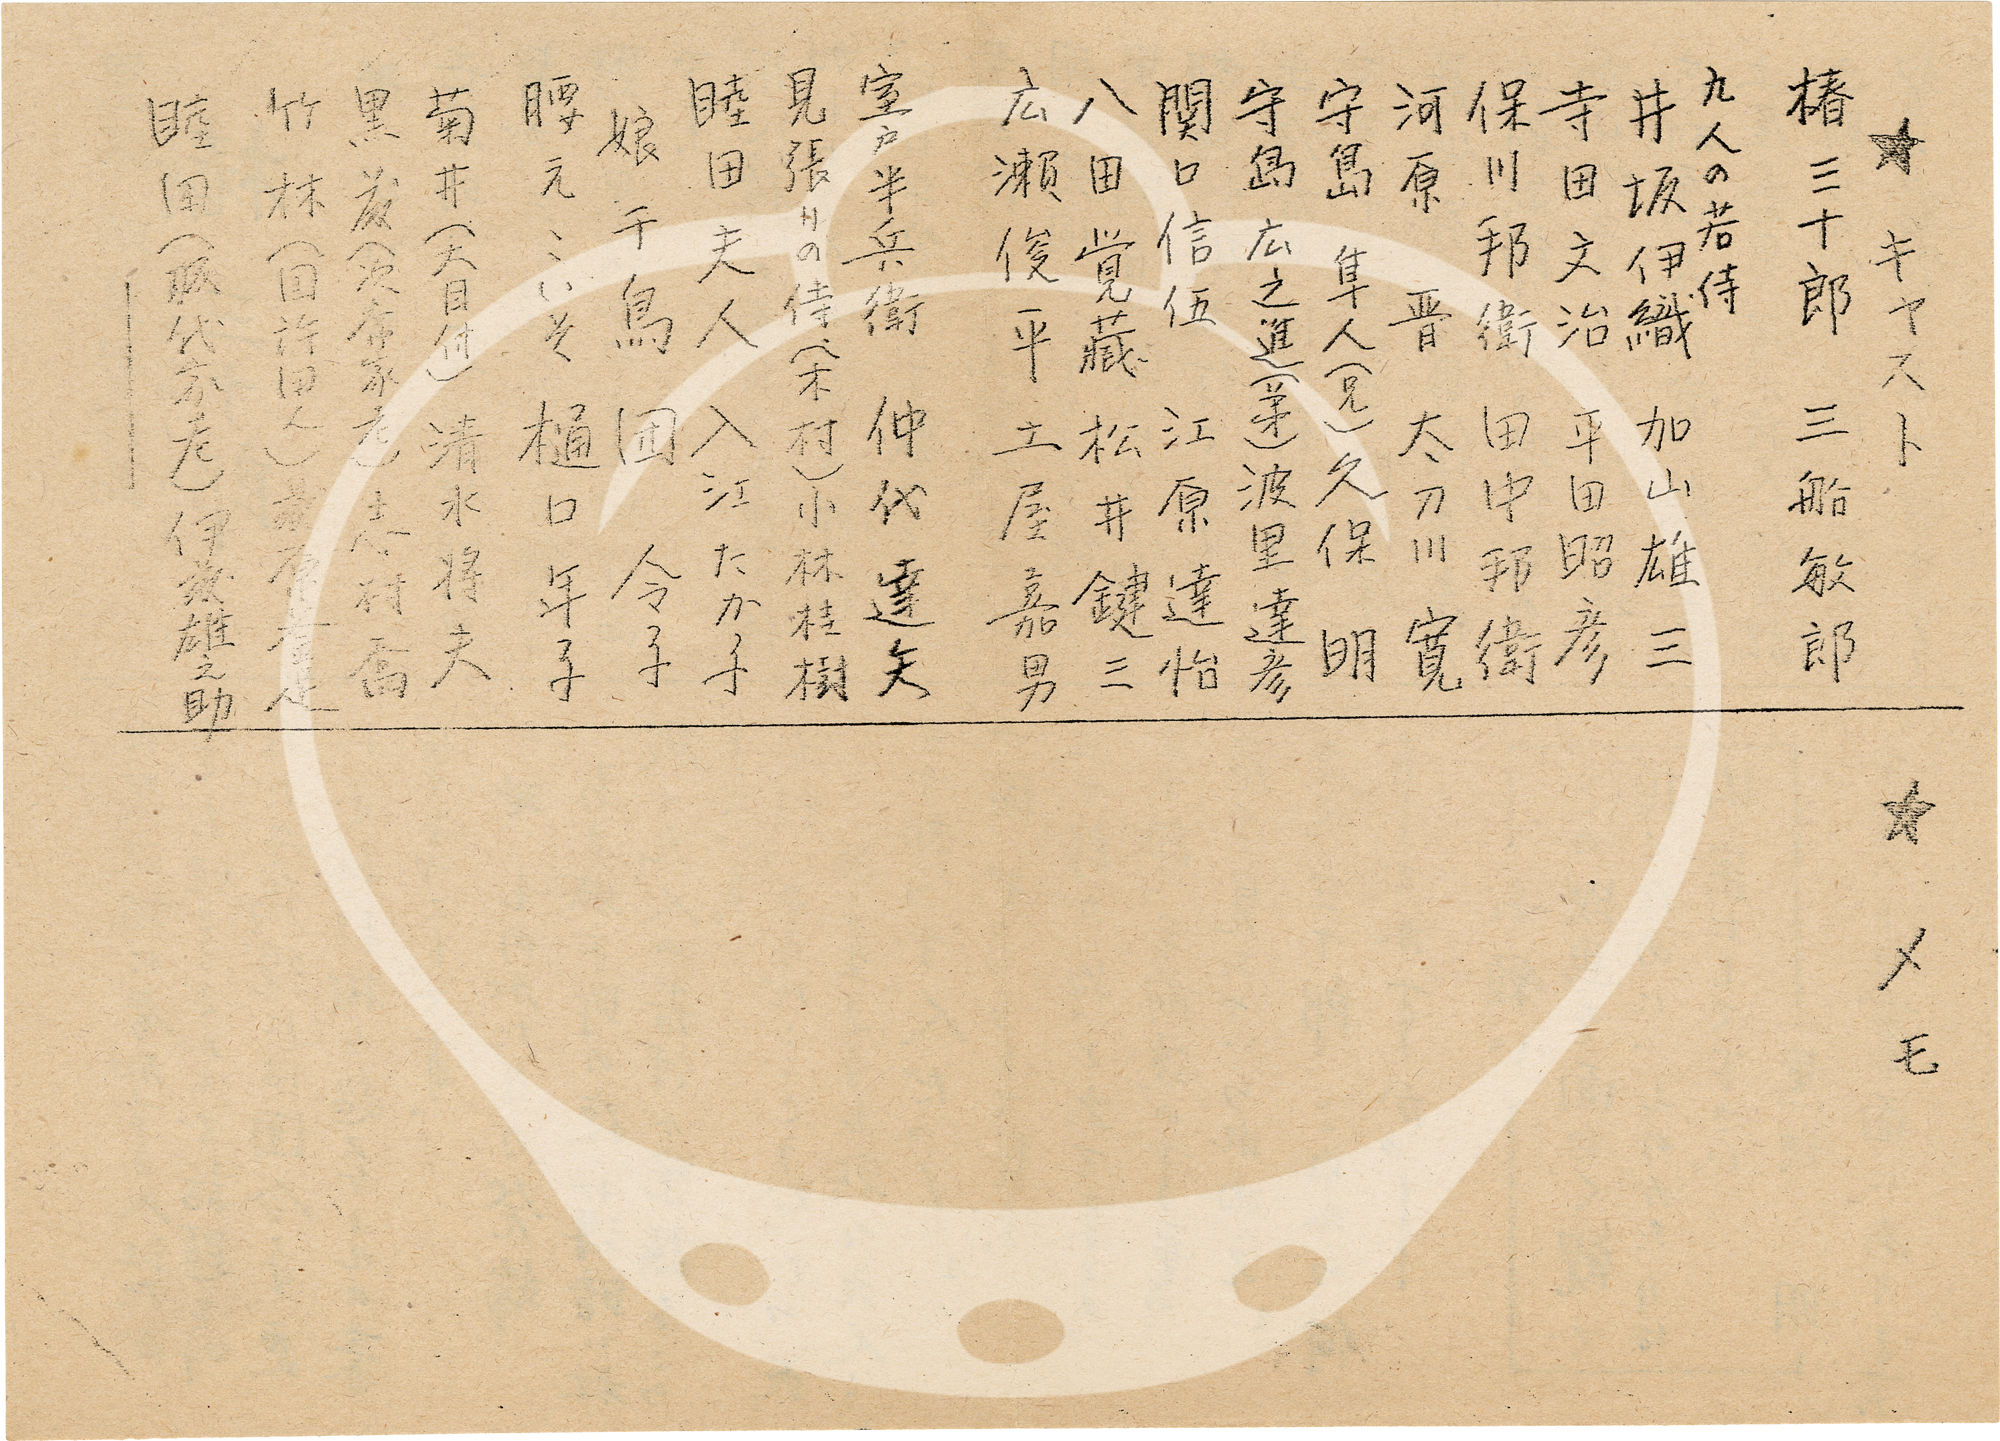 ★ キャスト
椿三十郎 三船敏郎
九人の若侍
井坂伊織 加山雄三
寺田文治 平田昭彦
保川邦衛 田中邦衛
河原晋 太刀川寛
守島隼人(兄)久保明
守島広之進(弟)波里達彦
関口信伍 江原達怡
八田覚蔵 松井鍵三
広瀬俊平 土屋嘉男
室戸半兵衛 仲代達矢
見張りの侍(木村)小林桂樹
睦田夫人 入江たか子
娘 千鳥 団令子
腰元こいそ 樋口年子
菊井(大目付)清水将夫
黒藤(次席家老)志村喬
竹林(国許用人)藤原釜足
睦田(城代家老)伊藤雄之助
★ メモ